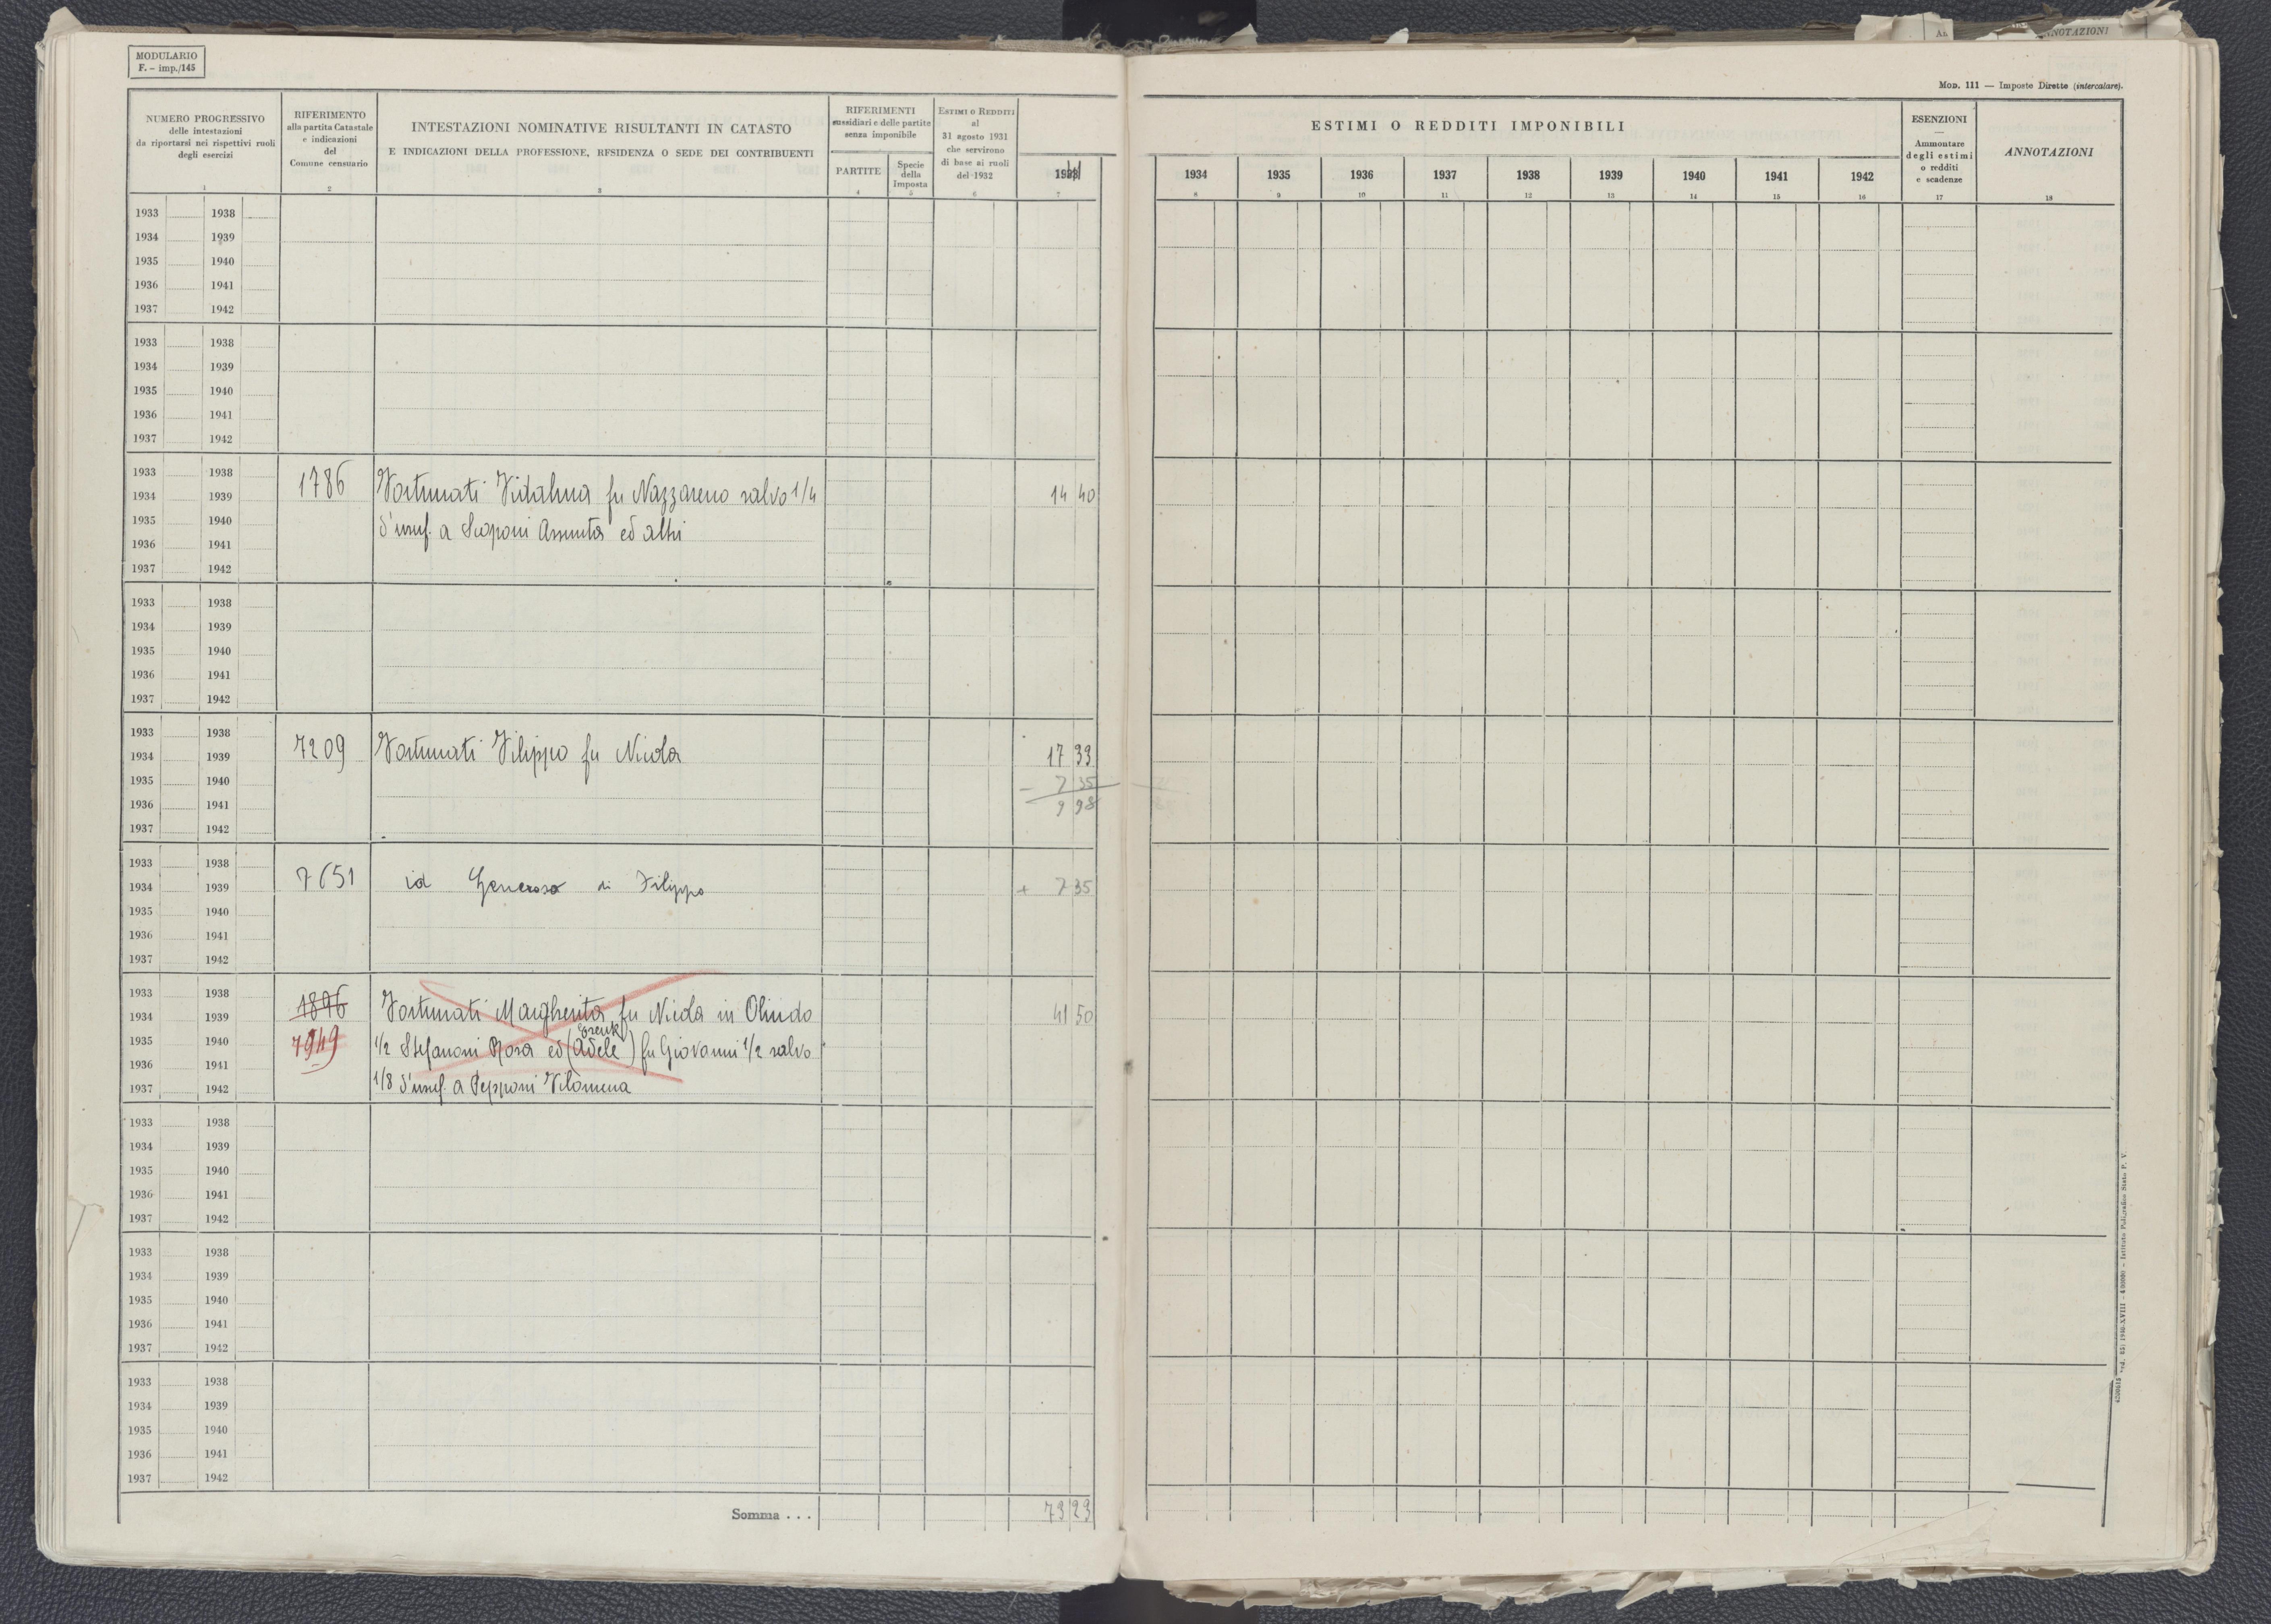 MODULARIO
F. - imp./145
NUMERO PROGRESSIVO
delle intestazioni
da riportarsi nei rispettivi ruoli
degli esercizi
1
RIFERIMENTO
alla partita Catastale
e indicazioni
del
Comune censuario
2
INTESTAZIONI NOMINATIVE RISULTANTI IN CATASTO
E INDICAZIONI DELLA PROFESSIONE, RESIDENZA O SEDE DEI CONTRIBUENTI
3
RIFERIMENTI
sussidiari e delle partite
senza imponibile
PARTITE
4
Specie
della
Imposta
5
ESTIMI O REDDITI
al
31 agosto 1931
che servirono
di base ai ruoli
del 1932
6
7
Mod. 111 — Imposte Dirette (intercalare).
ESTIMI O REDDITI IMPONIBILI
1934 1935 1936 1937 1938 1939 1940 1941 1942
8 9 10 11 12 13 14 15 16
ESENZIONI
Ammontare
degli estimi
o redditi
e scadenze
17
ANNOTAZIONI
18
ANNOTAZIONI
1933 1938
1934 1939
1935 1940
1936 1941
1937 1942
1933 1938
1934 1939
1935 1940
1936 1941
1937 1942
1933 1938
1934 1939
1935 1940
1936 1941
1937 1942
1786 Fortunati Fidalma fu Nazzareno salvo 1/4 14 40
d'usuf. a Scoponi Assunta ed altri
1933 1938
1934 1939
1935 1940
1936 1941
1937 1942
1933 1938
1934 1939
1935 1940
1936 1941
1937 1942
7209 Fortunati Filippo fu Nicola 17 33
- 7 35
9 98
1933 1938
1934 1939
1935 1940
1936 1941
1937 1942
7651 id Generoso di Filippo + 7 35
1933 1938
1934 1939
1935 1940
1936 1941
1937 1942
1896 Fortunati Margherita fu Nicola in Olindo 41 50
7949 1/2 Stefanoni Rosa ed (Adele) fu Giovanni 1/2 salvo
1/8 d'usuf. a Pepponi Filomena
1933 1938
1934 1939
1935 1940
1936 1941
1937 1942
1933 1938
1934 1939
1935 1940
1936 1941
1937 1942
1933 1938
1934 1939
1935 1940
1936 1941
1937 1942
Somma . . . 73 23